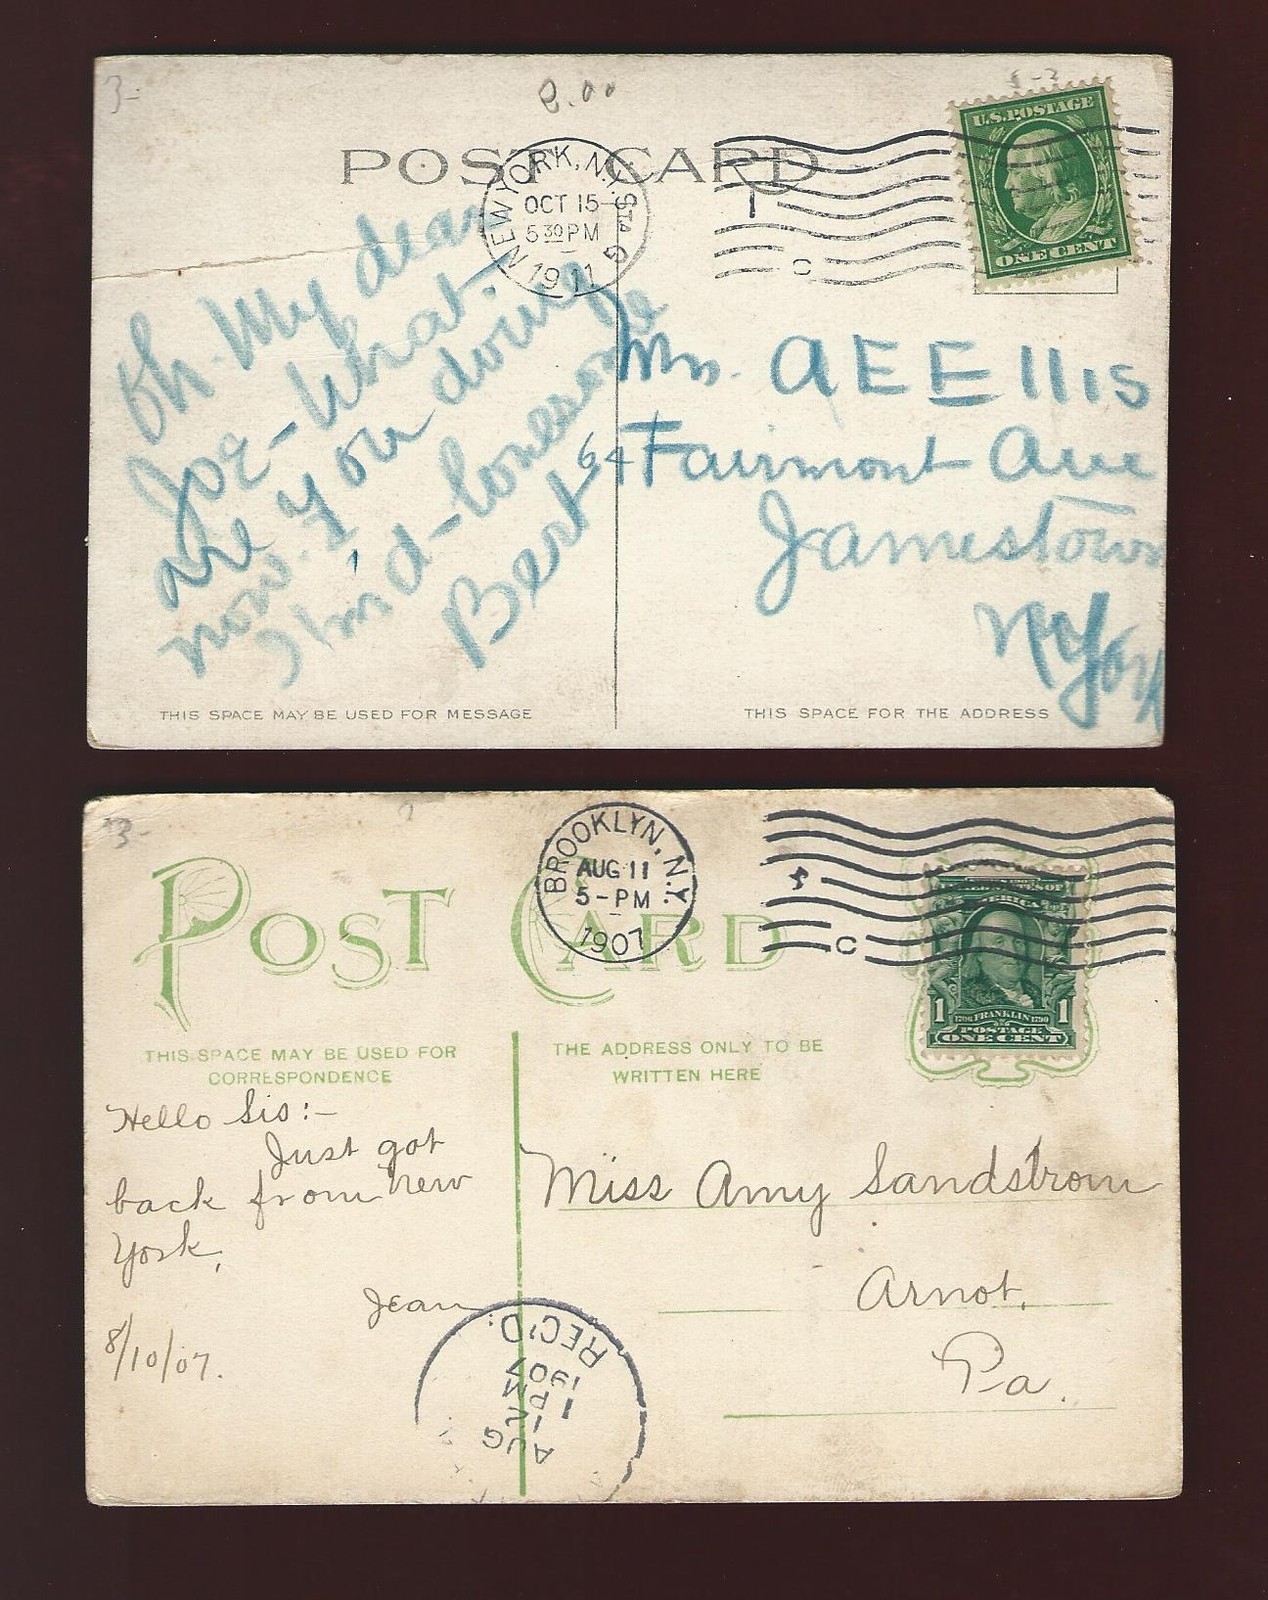 3-
2.00
POST CARD
NEW YORK, N.Y. STA G
OCT 15
5 30 PM
1911
U.S. POSTAGE
ONE CENT
Oh. My dear
Joe - What
are you doing
now. I
I'm d - lonesome
Bert
Mrs. A E Ellis
64 Fairmont Ave
Jamestown
N. York
THIS SPACE MAY BE USED FOR MESSAGE
THIS SPACE FOR THE ADDRESS
3-
POST CARD
BROOKLYN, N.Y.
AUG 11
5-PM
1907
C
UNITED STATES OF
AMERICA
1 1
1706 FRANKLIN 1790
POSTAGE
ONE CENT
THIS SPACE MAY BE USED FOR
CORRESPONDENCE
THE ADDRESS ONLY TO BE
WRITTEN HERE
Hello Sis:-
Just got
back from New
York,
Jean
8/10/07.
Miss Amy Sandstrom
Arnot,
Pa.
REC'D.
1907